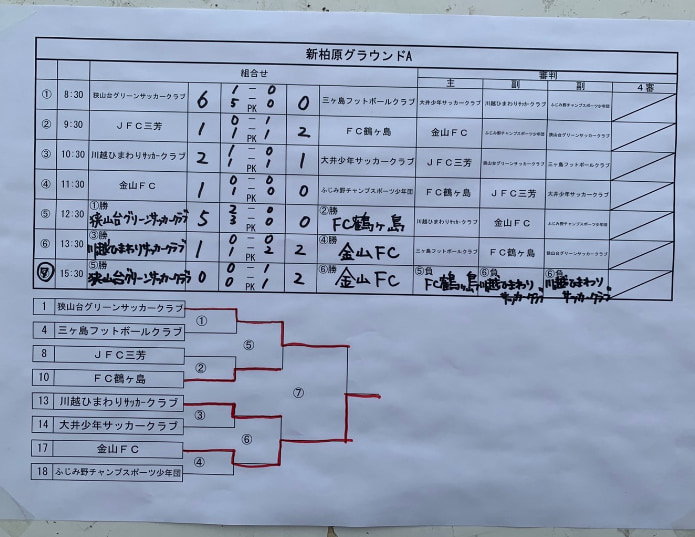 新柏原グラウンドA
組合せ 審判
主 副 副 4審
① 8:30 狭山台グリーンサッカークラブ 6 1 ー 0 5 PK 0 0 三ヶ島フットボールクラブ 大井少年サッカークラブ 川越ひまわりサッカークラブ ふじみ野チャンプスポーツ少年団
② 9:30 JFC三芳 1 0 ー 1 1 PK 1 2 FC鶴ヶ島 金山FC ふじみ野チャンプスポーツ少年団 狭山台グリーンサッカークラブ
③ 10:30 川越ひまわりサッカークラブ 2 1 ー 0 1 PK 1 1 大井少年サッカークラブ JFC三芳 狭山台グリーンサッカークラブ 三ヶ島フットボールクラブ
④ 11:30 金山FC 1 0 ー 0 1 PK 0 0 ふじみ野チャンプスポーツ少年団 FC鶴ヶ島 JFC三芳 大井少年サッカークラブ
⑤ 12:30 ①勝 狭山台グリーンサッカークラブ 5 2 ー 0 3 PK 0 0 ②勝 FC鶴ヶ島 川越ひまわりサッカークラブ 金山FC ふじみ野チャンプスポーツ少年団
⑥ 13:30 ③勝 川越ひまわりサッカークラブ 1 0 ー 0 1 PK 2 2 ④勝 金山FC 三ヶ島フットボールクラブ FC鶴ヶ島 狭山台グリーンサッカークラブ
⑦ 15:30 ⑤勝 狭山台グリーンサッカークラブ 0 0 ー 1 0 PK 1 2 ⑥勝 金山FC ⑤負 FC鶴ヶ島 ⑥負 川越ひまわりサッカークラブ ⑥負 川越ひまわりサッカークラブ
1 狭山台グリーンサッカークラブ
①
4 三ヶ島フットボールクラブ
⑤
8 JFC三芳
②
10 FC鶴ヶ島
⑦
13 川越ひまわりサッカークラブ
③
14 大井少年サッカークラブ
⑥
17 金山FC
④
18 ふじみ野チャンプスポーツ少年団